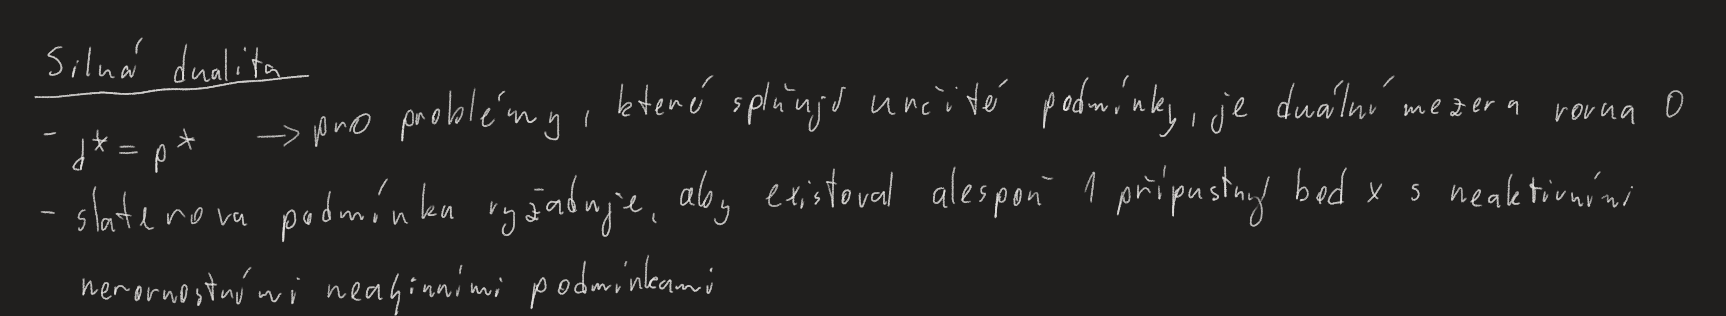 Silná dualita
- d* = p* → pro problémy, které splňují určité podmínky, je duální mezera rovna 0
- slaterova podmínka vyžaduje, aby existoval alespoň 1 přípustný bod x s neaktivními
nerovnostními neafinními podmínkami